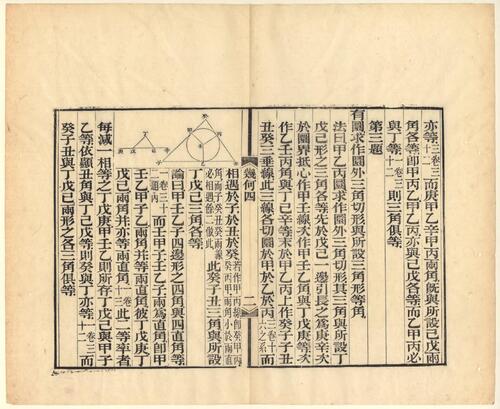 亦等三卷三十二而庚甲乙辛甲丙兩角旣與所設己戊兩
角各等卽甲丙乙甲乙丙亦與己戊各等而乙甲丙必
與丁等一卷三十二則三角俱等
第三題
有圜求作圜外三角切形與所設三角形等角
法曰甲乙丙圜求作圜外三角切形其三角與所設丁
戊己形之三角各等先於戊己一邊引長之爲庚辛次
於圜界抵心作甲壬線次作甲壬乙角與丁戊庚等次
作乙壬丙角與丁己辛等末於甲乙丙上作癸子子丑
丑癸三垂線此三線各切圜於甲於乙於丙三卷十六之系
幾何四
二
相遇於子於丑於癸若作甲丙線卽癸甲丙癸丙甲兩角小於兩直角而子癸丑癸兩線必相遇餘二倣此此癸子丑三角與所設
丁戊己三角各等
論曰甲壬乙子四邊形之四角與四直角等
一卷三二題內而壬甲子壬乙子兩爲直角卽甲
壬乙甲子乙兩角并等兩直角彼丁戊庚丁
戊己兩角并亦等兩直角一卷十三此二等率者
每減一相等之丁戊庚甲壬乙則所存丁戊己與甲子
乙等依顯丑角與丁己戊等則癸與丁亦等一卷三十二而
癸子丑與丁戊己兩形之各三角俱等